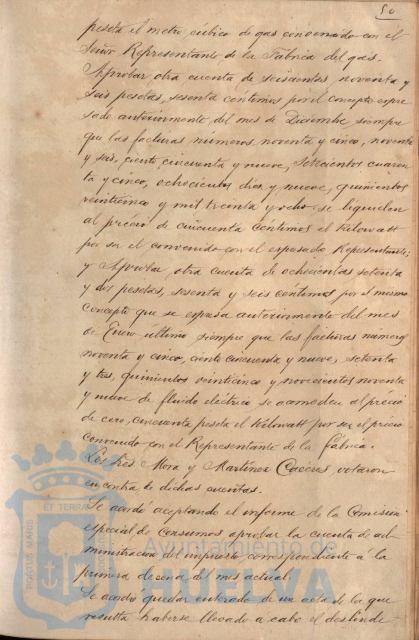 50
peseta el metro cúbico de gas convenido con el
Señor Representante de la Fábrica del gas.
Aprobar otra cuenta de seiscientas noventa y
seis pesetas, sesenta céntimos por el concepto expre
sado anteriormente del mes de Diciembre siempre
que las facturas números, noventa y cinco, noventa
y seis, ciento cincuenta y nueve, setecientos cuaren
ta y cinco, ochocientos diez y nueve, quinientos
veinticinco y mil treinta y ocho se liquiden
al precio de cincuenta céntimos el Kilowatt
por ser el convenido con el expresado Representante;
y Aprobar otra cuenta de ochocientas setenta
y dos pesetas, sesenta y seis céntimos por el mismo
concepto que se expresa anteriormente del mes
de Enero último siempre que las facturas números
noventa y cinco, ciento cincuenta y nueve, setenta
y tres, quinientos veinticinco y novecientos noventa
y nueve de fluido eléctrico se acomoden al precio
de cero, cincuenta peseta el Kilowatt por ser el precio
convenido con el Representante de la fábrica.
Los Sres Mora y Martinez Caceres votaron
en contra de dichas cuentas.
Se acordó aceptando el informe de la Comision
especial de Consumos aprobar la cuenta de ad-
ministracion del impuesto correspondiente á la
primera decena del mes actual.
Se acordó quedar enterado de un acta de la que
resulta haberse llevado a cabo el deslinde
PORTUS MARIS
ET TERRAE
Ayuntamiento de
HUELVA